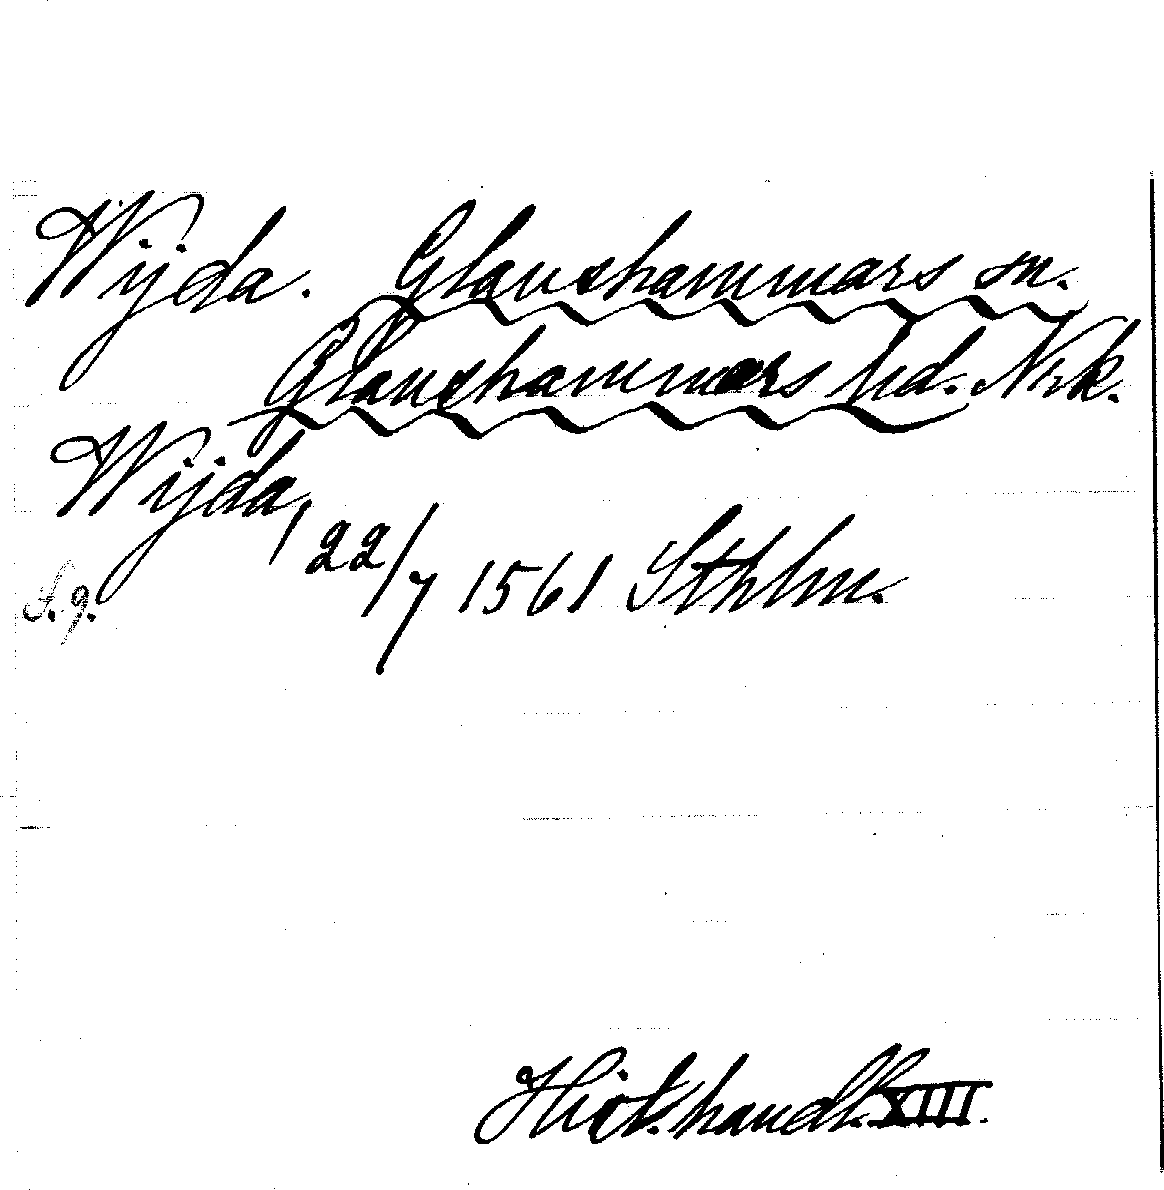 Wijda. Glanshammars sn.
Glanshammars hd. Nrk.
Wijda,
22/7 1561 Sthlm.
S. 9.
Hist. handl. XIII.